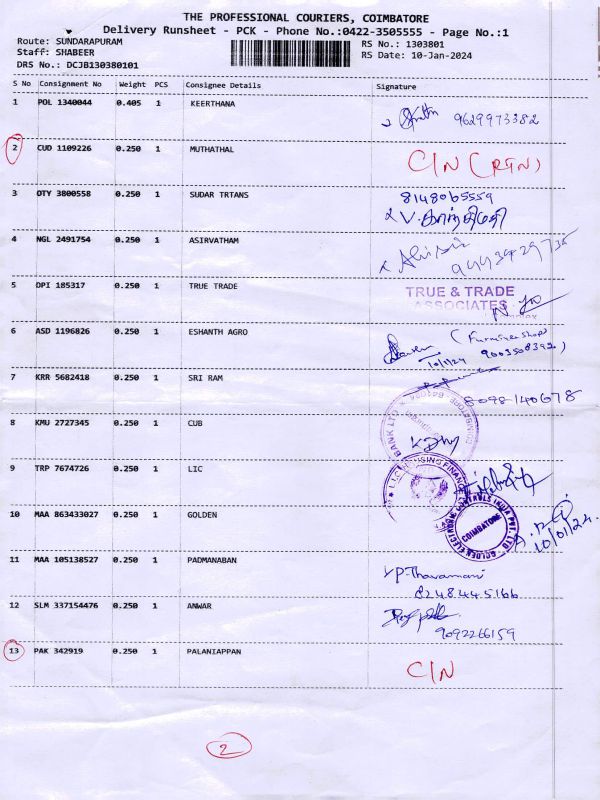 THE PROFESSIONAL COURIERS, COIMBATORE
Delivery Runsheet - PCK - Phone No.:0422-3505555 - Page No.:1
Route: SUNDARAPURAM
Staff: SHABEER
DRS No.: DCJB130380101
RS No.: 1303801
RS Date: 10-Jan-2024
S No Consignment No Weight PCS Consignee Details Signature
1 POL 1340044 0.405 1 KEERTHANA 9629973382
2 CUD 1109226 0.250 1 MUTHATHAL C/N (RTN)
3 OTY 3800558 0.250 1 SUDAR TRTANS 8148065559
V. காந்திமதி
4 NGL 2491754 0.250 1 ASIRVATHAM
5 DPI 185317 0.250 1 TRUE TRADE TRUE & TRADE
ASSOCIATES
6 ASD 1196826 0.250 1 ESHANTH AGRO (Furniture shop)
10/1/24 9003508392
7 KRR 5682418 0.250 1 SRI RAM 8098140678
8 KMU 2727345 0.250 1 CUB BANK LTD
9 TRP 7674726 0.250 1 LIC L.I.C HOUSING FINANCE
10 MAA 863433027 0.250 1 GOLDEN GOLDEN ELECTRONIC CONTROLS INDIA PVT. LTD
COIMBATORE
10/01/24
11 MAA 105138527 0.250 1 PADMANABAN P. Thavamani
8248445166
12 SLM 337154476 0.250 1 ANWAR
9092266159
13 PAK 342919 0.250 1 PALANIAPPAN C/N
2